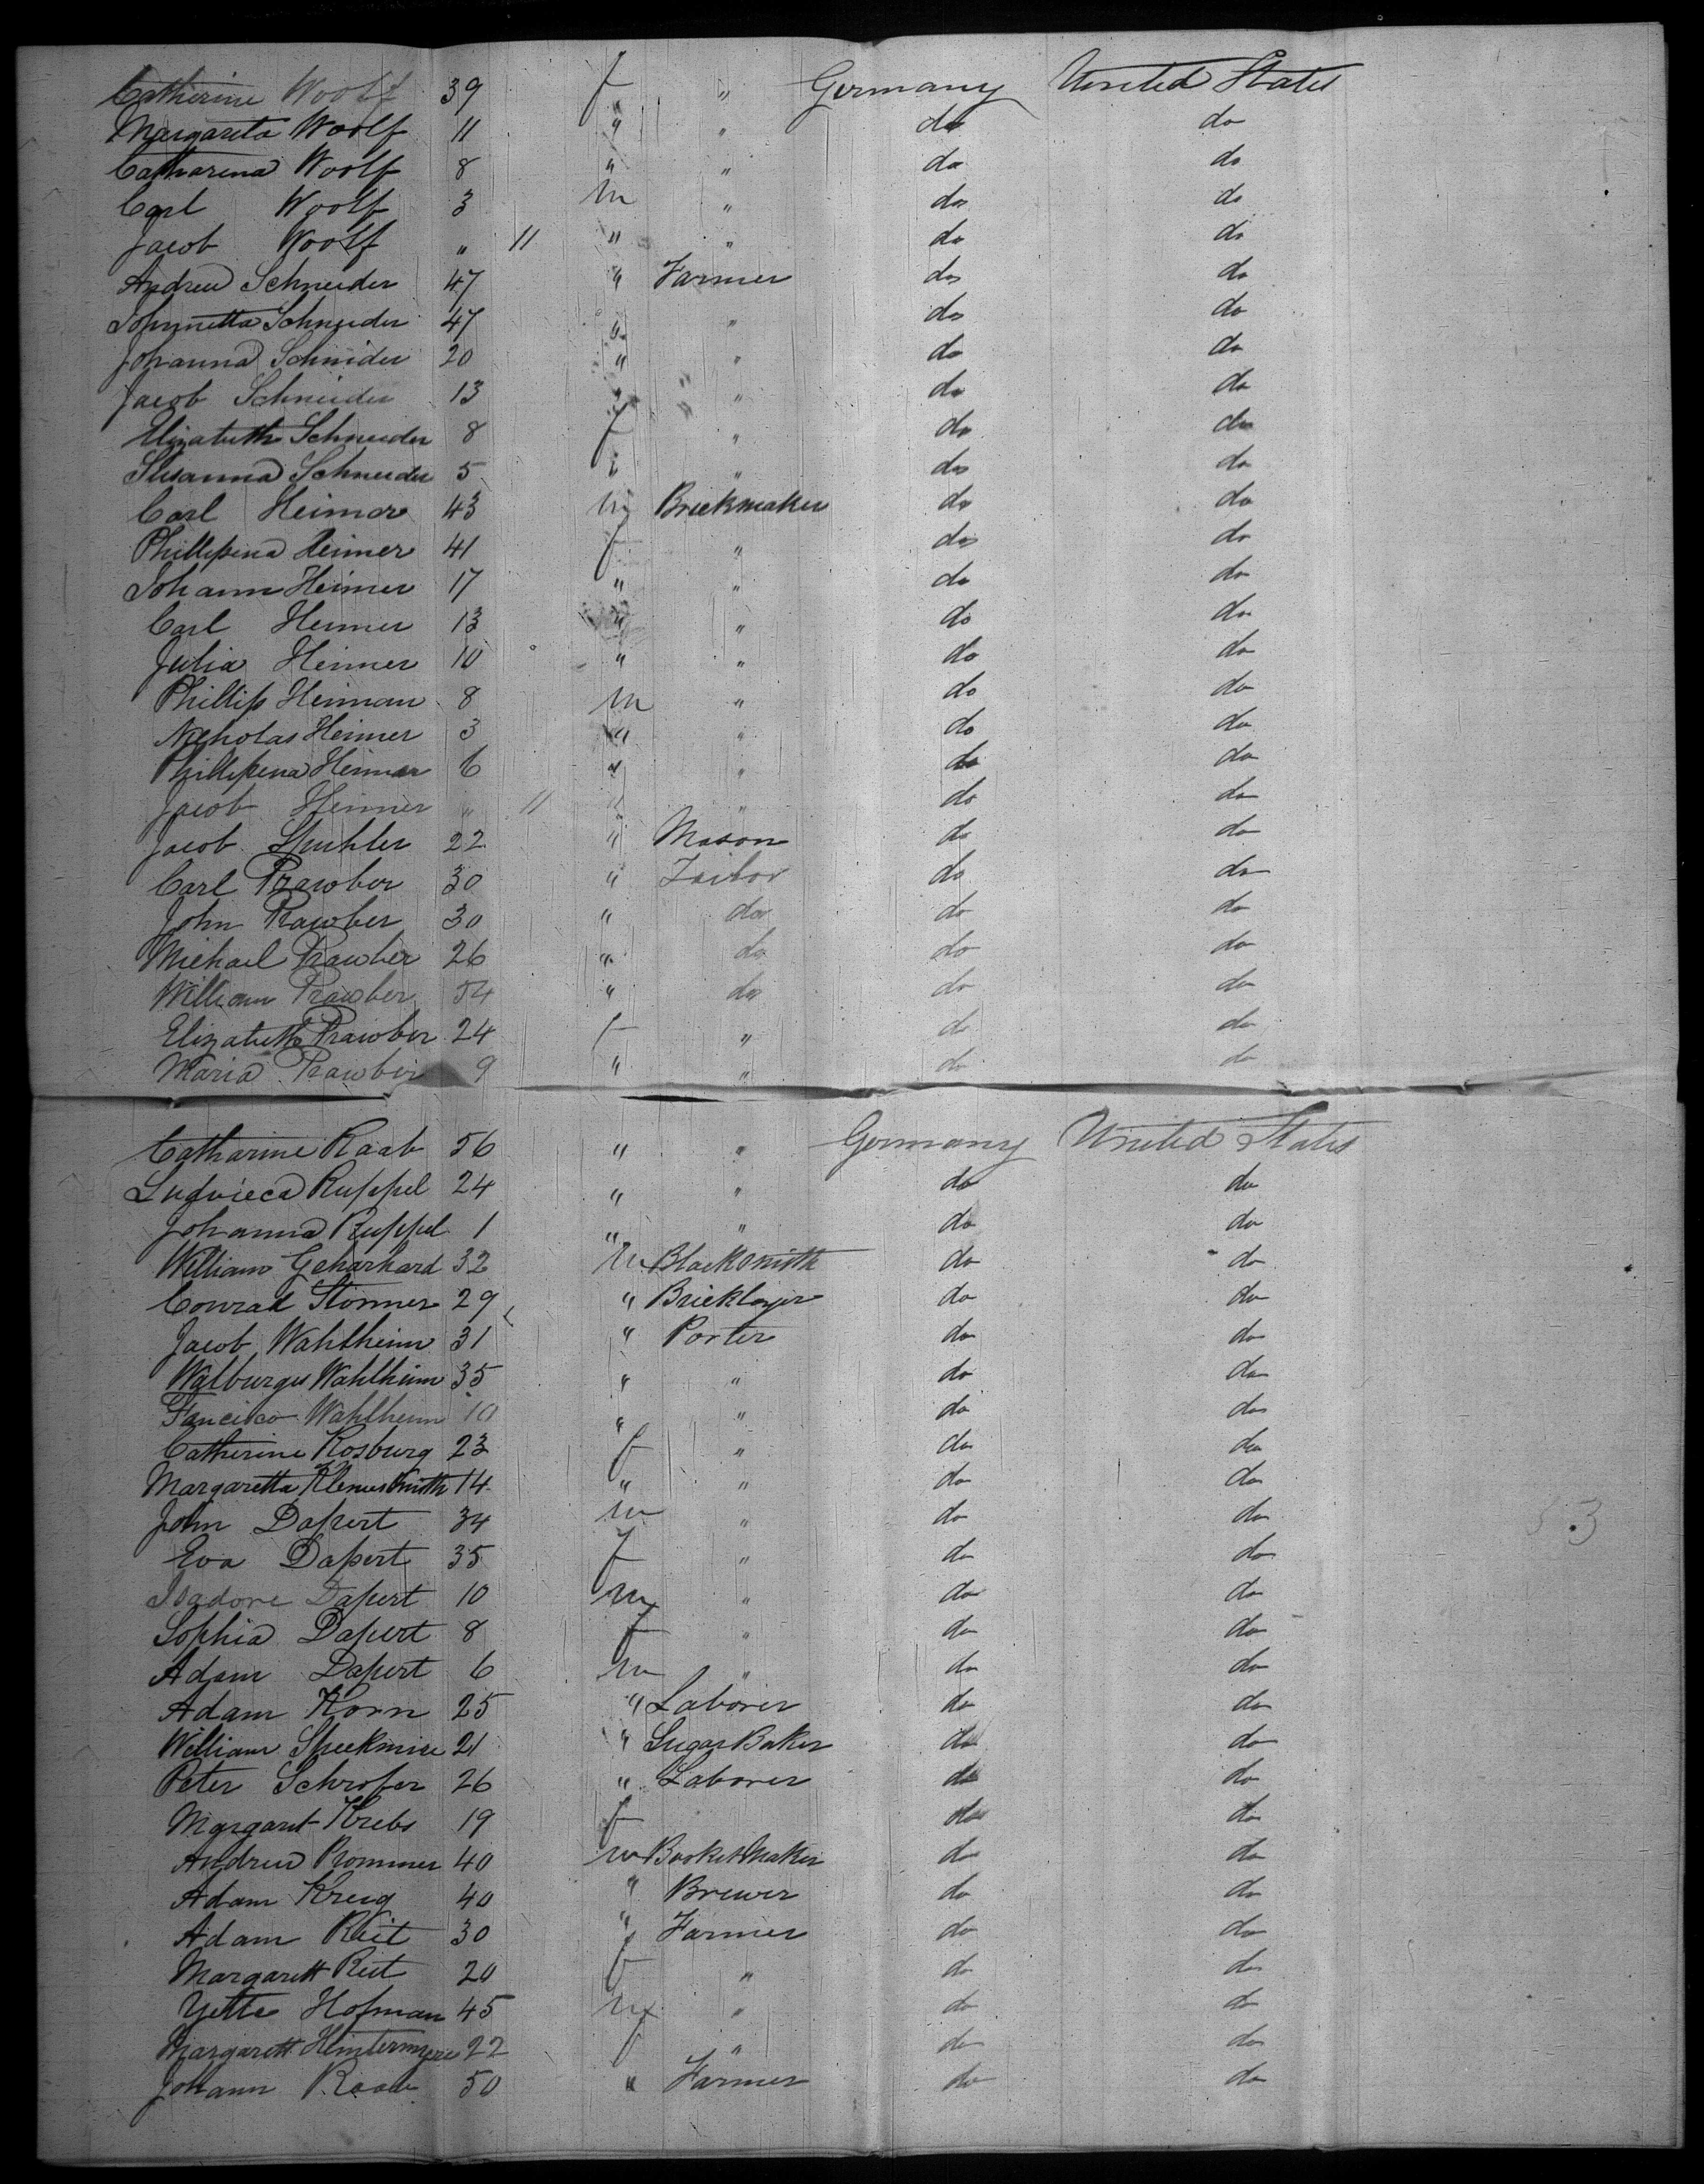 Catherine Woolf 39 f " Germany United States
Margareta Woolf 11 " " do do
Catharina Woolf 8 " " do do
Carl Woolf 3 m " do do
Jacob Woolf " 11 " " do do
Andrew Schneider 47 " Farmer do do
Schneider 47 " " do do
Johanna Schnider 20 " " do do
Jacob Schneider 13 " " do do
Elizabeth Schneider 8 f " do do
Susanna Schneider 5 " " do do
Carl Heimer 43 m Brickmaker do do
Phillipina Heimer 41 f " do do
Johann Heimer 17 " " do do
Carl Heimer 13 " " do do
Julia Heimer 10 " " do do
Phillip Heiman 8 m " do do
Nicholas Heimer 3 " " do do
Phillipena Heimer 6 " " do do
Jacob Heimer " 11 " " do do
Jacob Spuhler 22 " Mason do do
Carl Prawber 30 " Tailor do do
John Prawber 30 " do do do
Michael Prawber 26 " do do do
William Prawber 54 " do do do
Elizabeth Prawber 24 f " do do
Maria Prawber 9 " " do do
Catharine Raab 56 " " Germany United States
Ludvieca Ruppel 24 " " do do
Johanna Ruppel 1 " " do do
William Geharhard 32 m Blacksmith do do
Conrad Stormer 29 " Bricklayer do do
Jacob Wahlheim 31 " Porter do do
Walburger Wahlheim 35 " " do do
Fancisco Wahlheim 10 " " do do
Catherine Rosburg 23 f " do do
Margaretta 14 " " do do
John Dapert 34 m " do do
Eva Dapert 35 f " do do
Isadore Dapert 10 m " do do
Sophia Dapert 8 f " do do
Adam Dapert 6 m " do do
Adam Korn 25 " Laborer do do
William Speckmire 21 " Sugar Baker do do
Peter Schrofer 26 " Laborer do do
Margaret Krebs 19 f do do
Andrew Prommer 40 m Basket Maker do do
Adam Kreig 40 " Brewer do do
Adam Reit 30 " Farmer do do
Margarett Reit 20 f " do do
Yette Hofman 45 m " do do
Margarett 22 f " do do
Johann Raab 50 " Farmer do do